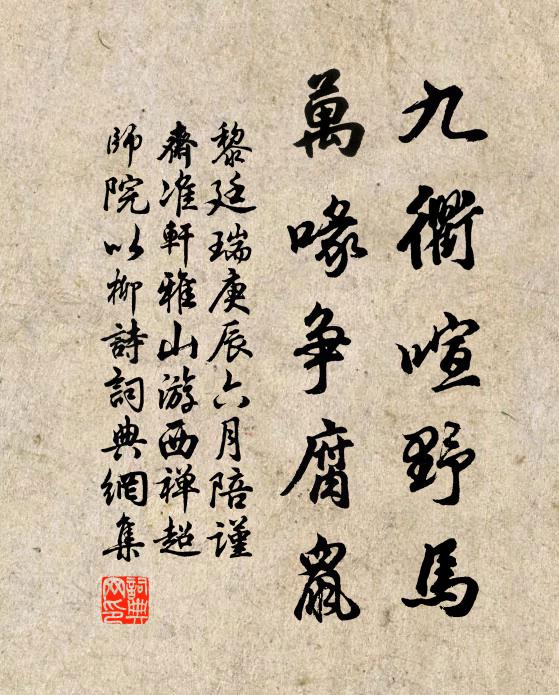 九衢喧野馬
萬喙争腐鼠
黎廷瑞庚辰六月陪谨
齋准軒雅山游西禅超
師院以柳詩詞典網集
詞典